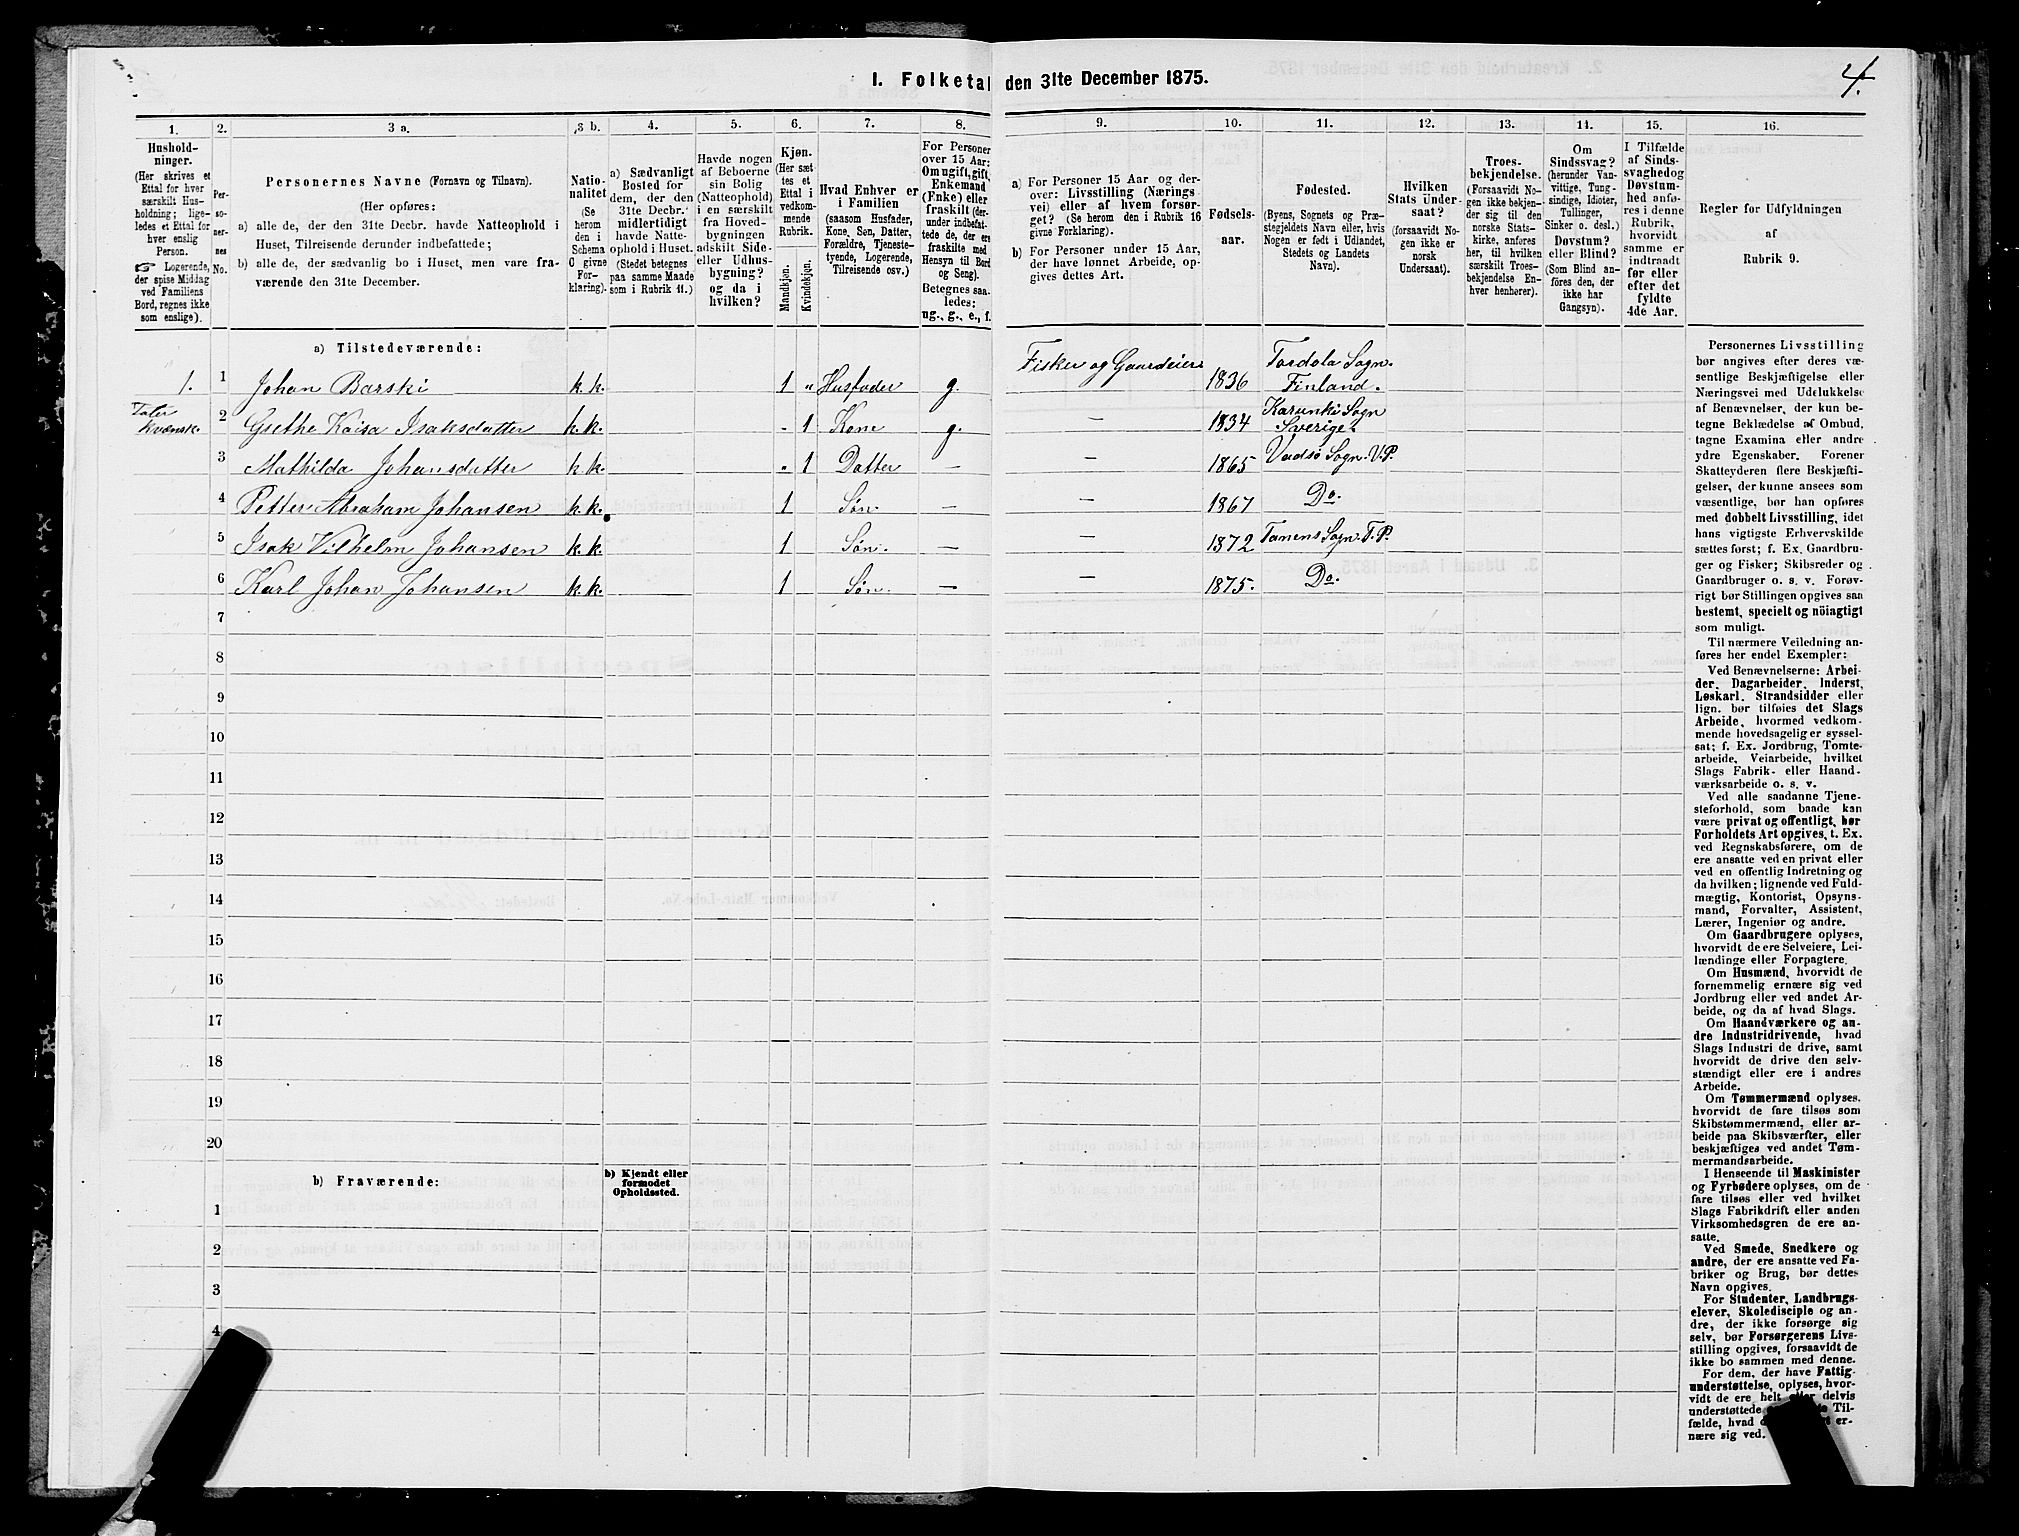 I. Folketal den 31te December 1875.
4.
1. 2. 3 a. 3 b. 4. 5. 6. 7. 8. 9. 10. 11. 12. 13. 14. 15. 16.
Hushold-
ninger.
(Her skrives et
Ettal for hver
særskilt Hus-
holdning; lige-
ledes et Ettal for
hver enslig
Person.
☞ Logerende,
der spise Middag
ved Familiens
Bord, regnes ikke
som enslige).
Per-
so-
ner-
nes
No.
Personernes Navne (Fornavn og Tilnavn).
(Her opføres:
a) alle de, der den 31te Decbr. havde Natteophold i
Huset, Tilreisende derunder indbefattede;
b) alle de, der sædvanlig bo i Huset, men vare fra-
værende den 31te December.
Natio-
nalitet
(Se
herom
den i
Schema
C givne
For-
klaring).
a) Sædvanligt
Bosted for
dem, der den
31te Decbr.
midlertidigt
havde Natte-
ophold i Huset.
(Stedet betegnes
paa samme Maade
som i Rubrik 11.)
Havde nogen
af Beboerne
sin Bolig
(Natteophold)
i en særskilt
fra Hoved-
bygningen
adskilt Side-
eller Udhus-
bygning?
og da i
hvilken?
Kjøn.
(Her sæt-
tes et
Ettal i
vedkom-
mende
Rubrik.
Mandkjøn.
Kvindekjøn.
Hvad Enhver er
i Familien
(saasom Husfader,
Kone, Søn, Datter,
Forældre, Tjeneste-
tyende, Logerende,
Tilreisende osv.)
For Personer
over 15 Aar:
Om ugift, gift,
Enkemand
(Enke) eller
fraskilt (der-
under indbefat-
tede de, der ere
fraskilte med
Hensyn til Bord
og Seng).
Betegnes saa-
ledes:
ug., g., e., f.
a) For Personer 15 Aar og der-
over: Livsstilling (Nærings
vei) eller af hvem forsør-
get? (Se herom den i Rubrik 16
givne Forklaring).
b) For Personer under 15 Aar,
der have lønnet Arbeide, op-
gives dettes Art.
Fødsels-
aar.
Fødested.
(Byens, Sognets og Præ-
stegjeldets Navn eller, hvis
Nogen er født i Udlandet,
Stedets og Landets
Navn).
Hvilken
Stats Under-
saat?
(forsaavidt No-
gen ikke er
norsk
Undersaat).
Troes-
bekjendelse.
(Forsaavidt No-
gen ikke bekjen-
der sig til den
norske Stats-
kirke, anføres
her, til hvilken
særskilt Troes-
bekjendelse En-
hver henhører).
Om
Sindssvag?
(herunder Van-
vittige, Tung-
sindige, Idioter,
Tullinger,
Sinker o. desl.)
Døvstum?
eller Blind?
(Som Blind an-
føres den, der
ikke har
Gangsyn).
I Tilfælde
af Sinds-
svaghed og
Døvstum-
hed anfø-
res i denne
Rubrik,
hvorvidt
samme er
indtraadt
før eller
efter det
fyldte
4de Aar.
Regler for Udfyldningen
af
Rubrik 9.
a) Tilstedeværende:
1. 1 Johan Barski k.k. 1 „ Husfader g. Fisker og Gaardeier 1836 Tordola Sogn. Finland.
Taler Kvænsk. 2 Grethe Kaisa Isaksdatter k.k. - 1 Kone g. — 1834 Karunki Sogn Sverige.
3 Mathilda Johansdatter k.k. - 1 Datter — — 1865 Vadsø Sogn. V.P.
4 Petter Abraham Johansen k.k. 1 Søn. — — 1867 Do.
5 Isak Vilhelm Johansen k.k. 1 Søn. — — 1872 Tanens Sogn. T.P.
6 Karl Johan Johansen k.k. 1 Søn. — — 1875. Do.
7
8
9
10
11
12
13
14
15
16
17
18
19
20
b) Fraværende:
b) Kjendt eller
formodet
Opholdssted.
1
2
3
4
Personernes Livsstilling
bør angives efter deres væ-
sentlige Beskjæftigelse eller
Næringsvei med Udelukkelse
af Benævnelser, der kun be-
tegne Beklædelse af Ombud,
tagne Examina eller andre
ydre Egenskaber. Forener
Skatteyderen flere Beskjæfti-
gelser, der kunne ansees som
væsentlige, bør han opføres
med dobbelt Livsstilling, idet
hans vigtigste Erhvervskilde
sættes først; f. Ex. Gaardbru-
ger og Fisker; Skibsreder og
Gaardbruger o. s. v. Forøv-
rigt bør Stillingen opgives saa
bestemt, specielt og nöiagtigt
som muligt.
Til nærmere Veiledning an-
føres her endel Exempler:
Ved Benævnelserne: Arbei-
der, Dagarbeider, Inderst,
Løskarl, Strandsidder eller
lign. bør tilføies det Slags
Arbeide, hvormed vedkom-
mende hovedsagelig er syssel-
sat; f. Ex. Jordbrug, Tomte-
arbeide, Veiarbeide, hvilket
Slags Fabrik- eller Haand-
værksarbeide o. s. v.
Ved alle saadanne Tjene-
steforhold, som baade kan
være privat og offentligt, bør
Forholdets Art opgives, t. Ex.
ved Regnskabsførere, om de
ere ansatte ved en privat eller
ved en offentlig Indretning og
da hvilken; lignende ved Fuld-
mægtig, Kontorist, Opsyns-
mand, Forvalter, Assistent,
Lærer, Ingeniør og andre.
Om Gaardbrugere oplyses,
hvorvidt de ere Selveiere, Lei-
lændinge eller Forpagtere.
Om Husmænd, hvorvidt de
fornemmelig ernære sig ved
Jordbrug eller ved andet Ar-
beide, og da af hvad Slags.
Om Haandværkere og an-
dre Industridrivende, hvad
Slags Industri de drive, samt
hvorvidt de drive den selv-
stændigt eller ere i andres
Arbeide.
Om Tømmermænd oplyses,
hvorvidt de fare tilsøs som
Skibstømmermænd, eller ar-
beide paa Skibsværfter, eller
beskjæftiges ved andet Tøm-
mermandsarbeide.
I Henseende til Maskinister
og Fyrbødere oplyses, om de
fare tilsøs eller ved hvilket
Slags Fabrikdrift eller anden
Virksomhedsgren de ere an-
satte.
Ved Smede, Snedkere og
andre, der ere ansatte ved Fa-
briker og Brug, bør dettes
Navn opgives.
For Studenter, Landbrugs-
elever, Skoledisciple og an-
dre, der ikke forsørge sig
selv, bør Forsørgerens Livs-
stilling opgives, forsaavidt de
ikke bo sammen med denne.
For dem, der have Fattig-
understøttelse, oplyses, hvor-
vidt de ere helt eller delvis
understøttede Til-
fælde, hvad er-
nære sig ved.